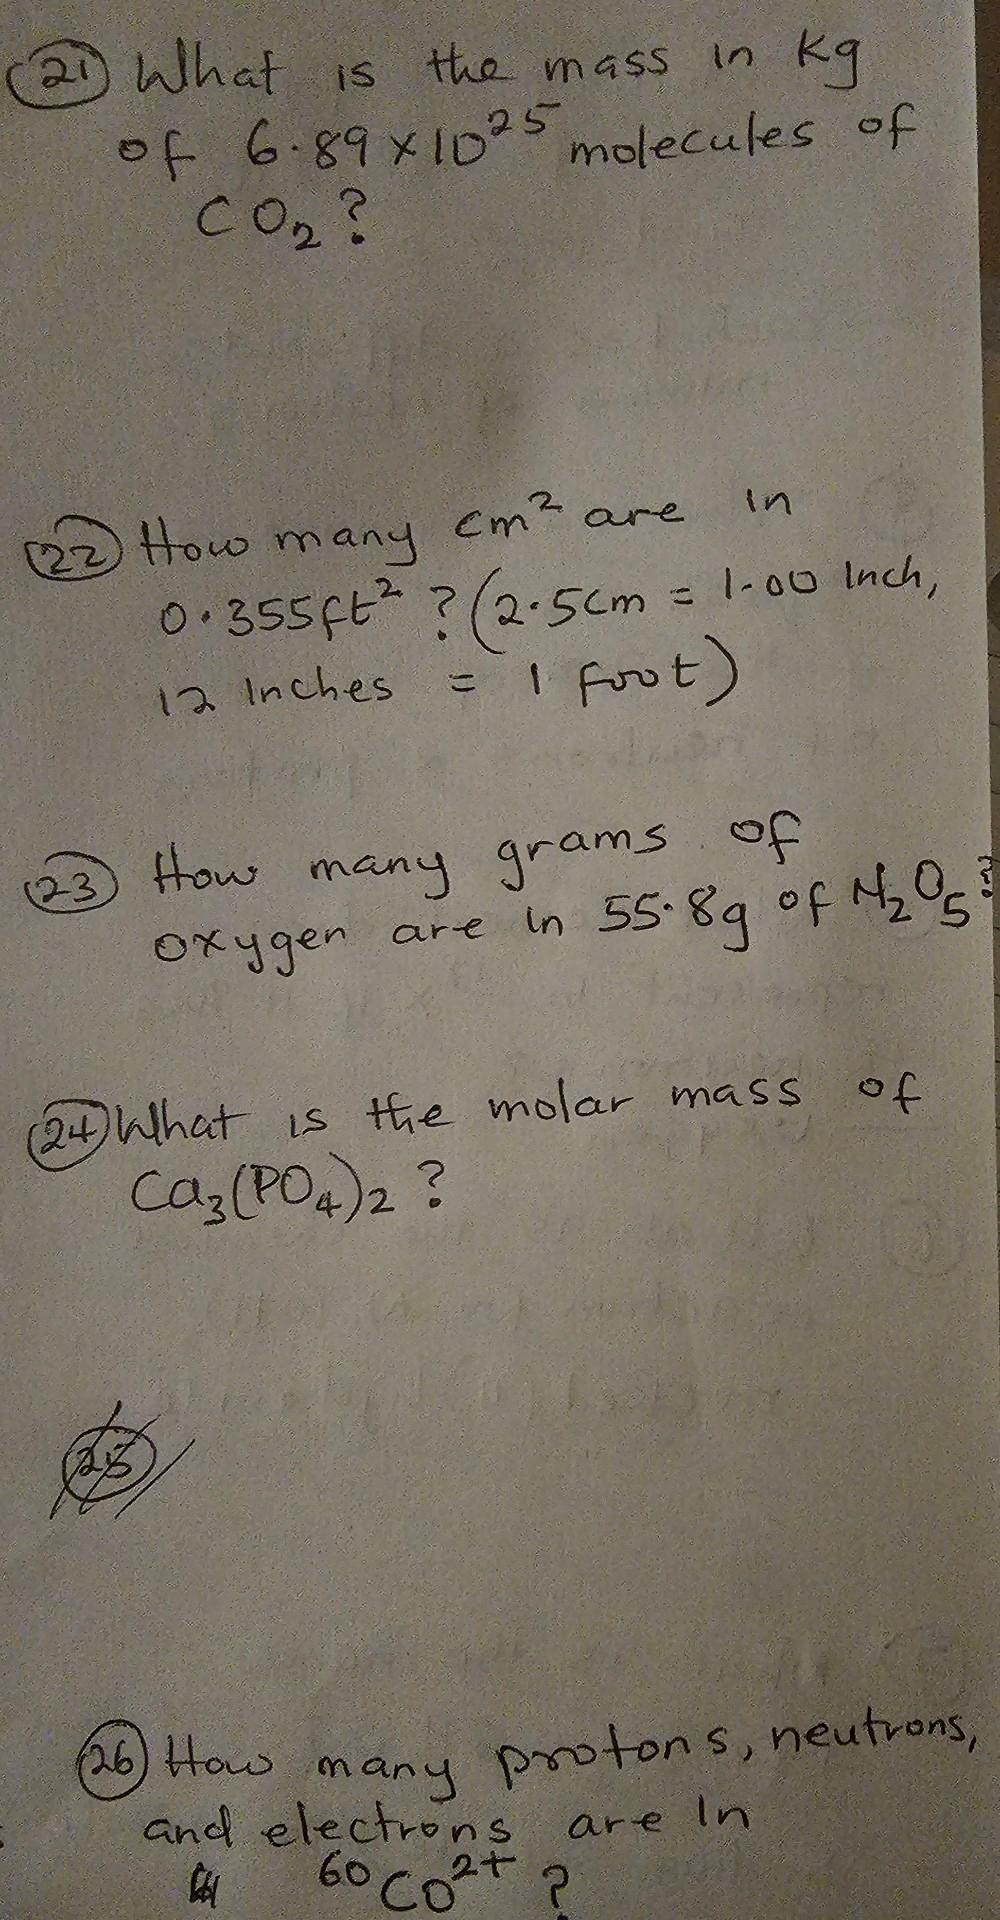 21 What is the mass in kg
of 6.89 x 10²⁵ molecules of
CO₂?
22 How many cm² are in
0.355ft² ? (2.5cm = 1.00 Inch,
12 Inches = 1 foot)
23 How many grams of
oxygen are in 55.8g of N₂O₅?
24 What is the molar mass of
Ca₃(PO₄)₂ ?
25
26 How many protons, neutrons,
and electrons are In
⁶⁰Co²⁺ ?